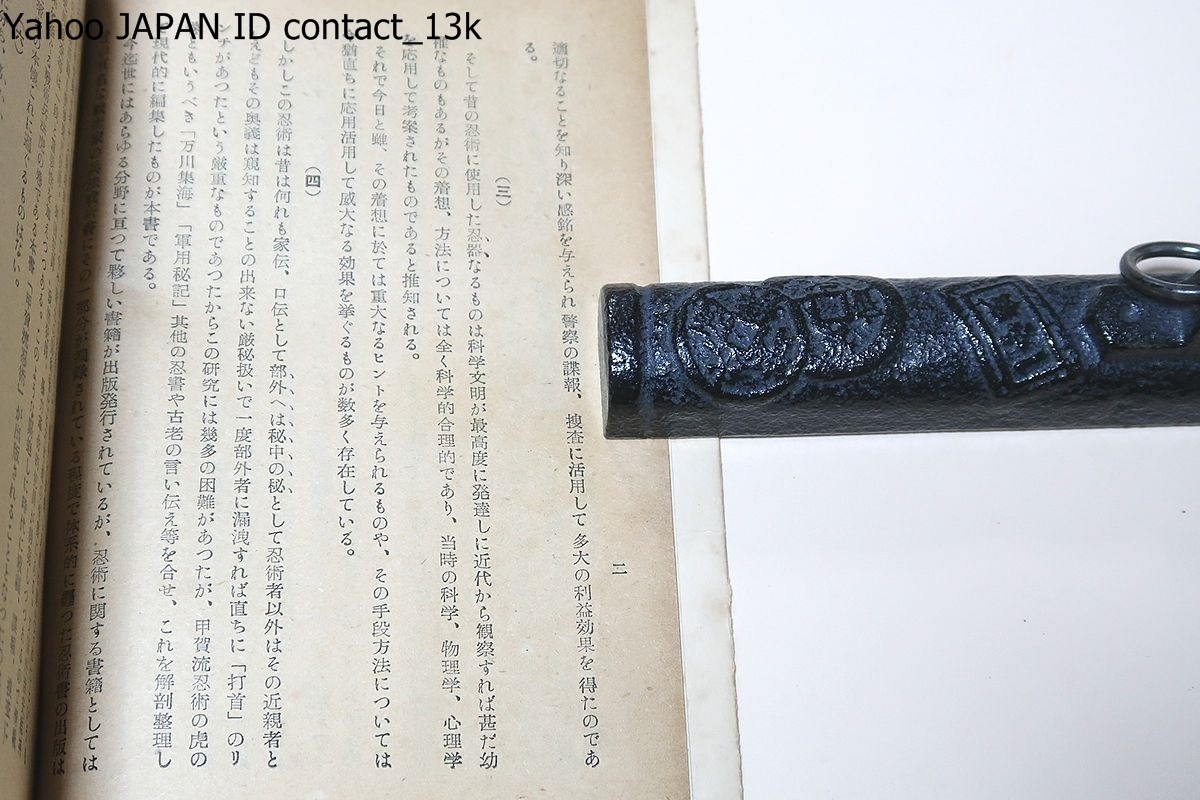 Yahoo JAPAN ID contact_13k
二
適切なることを知り深い感銘を与えられ 警察の諜報、捜査に活用して 多大の利益効果を 得たのであ
る。
(三)
そして昔の忍術に使用した忍器なるものは科学文明が最高度に発達しに近代から観察すれば甚だ幼
稚なものもあるがその着想、方法については全く科学的合理的であり、当時の科学、物理学、心理学
を応用して考案されたものであると推知される。
それで今日と雖、その着想に於ては重大なるヒントを与えられるものや、その手段方法については
猶直ちに応用活用して威大なる効果を挙ぐるものが数多く存在している。
(四)
しかしこの忍術は昔は何れも家伝、口伝として部外へは秘中の秘として忍術者以外はその近親者と
えどもその奥義は窺知することの出来ない厳秘扱いで一度部外者に漏洩すれば直ちに「打首」のリ
ンチがあつたという厳重なものであつたからこの研究には幾多の困難があつたが、甲賀流忍術の虎の
ともいうべき「万川集海」「軍用秘記」其他の忍書や古老の言い伝え等を合せ、これを解剖整理し
現代的に編集したものが本書である。
今迄世にはあらゆる分野に亘つて夥しい書籍が出版発行されているが、忍術に関する書籍としては
にその一部分が
されている程度で体系的に纒つた忍術書の出版は
ものはない。